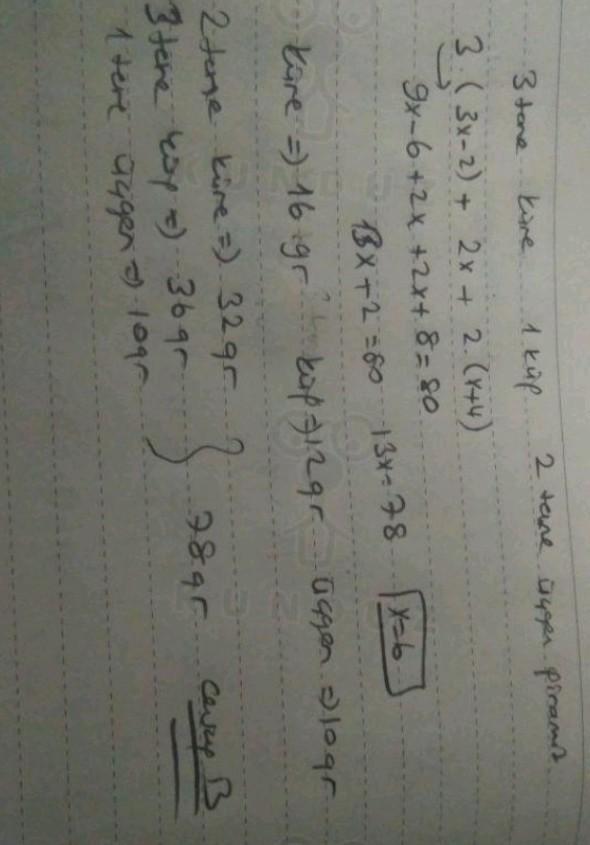 3 tane küre 1 küp 2 tane üçgen piramit
3 (3x-2) + 2x + 2.(x+4)
9x-6+2x+2x+8=80
13x+2=80 13x=78 x=6
küre => 16 gr küp => 12 gr üçgen => 10 gr
2 tane küre => 32 gr
3 tane küp => 36 gr } 78 gr Cevap B
1 tane üçgen => 10 gr